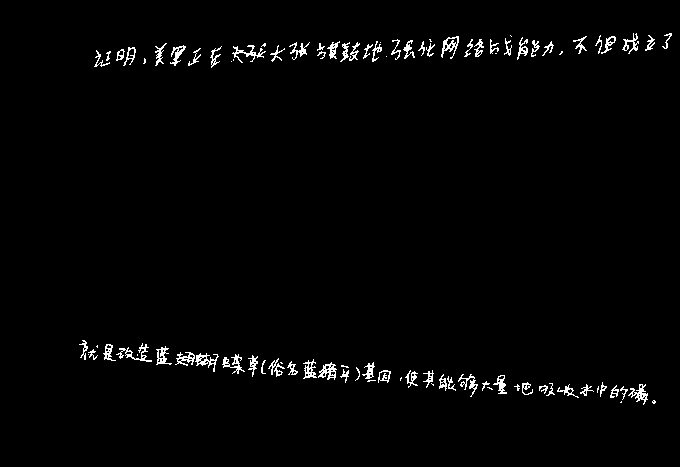 证明,美军正在大张大张旗鼓地强化网络战能力,不但成立了
就是改造蓝翅蝴蝶草(俗名蓝猪耳)基因,使其能够大量地吸收水中的磷。